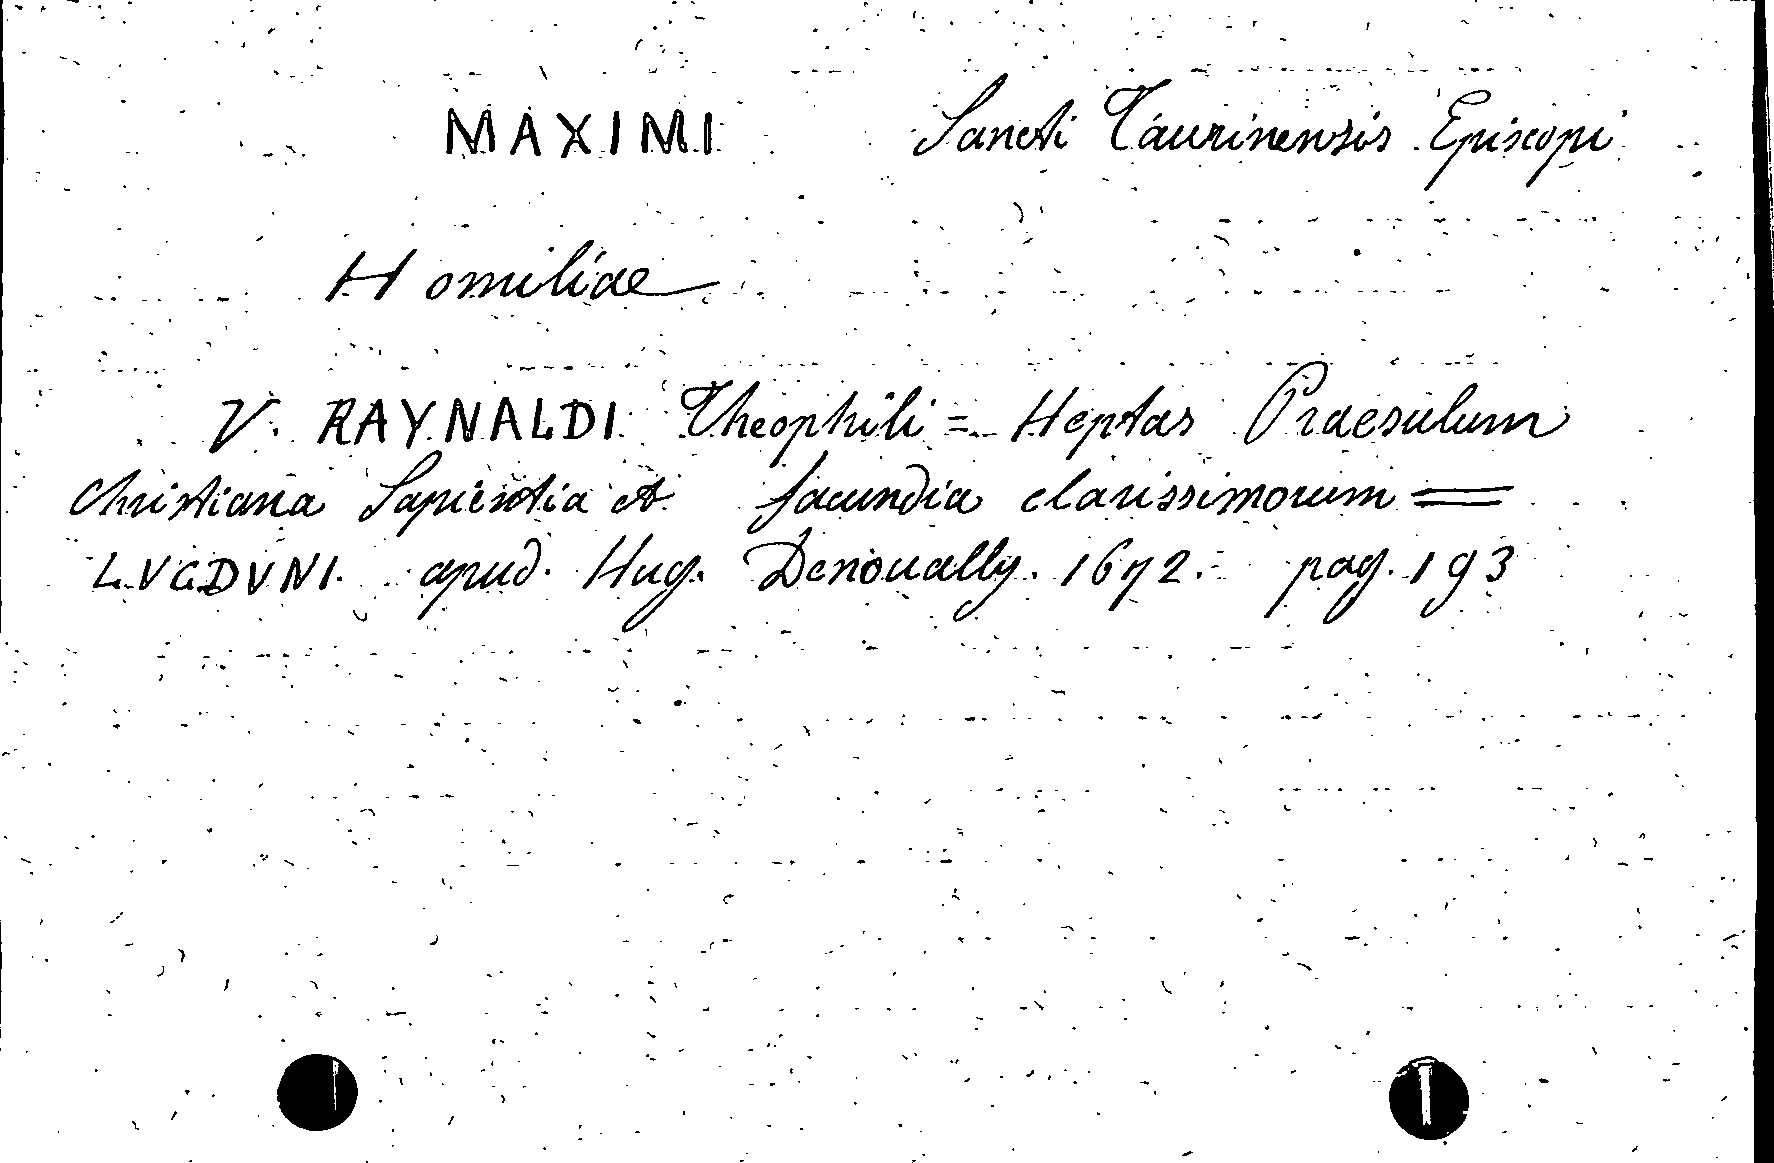 MAXIMI Sancti Taurinensis Episcopi
Homiliae
V. RAYNALDI Theophili = Heptas Praesulum
Christiana Sapientia et facundia clarissimorum =
LVGDVNI. apud. Hug. Denoually. 1672. pag. 193